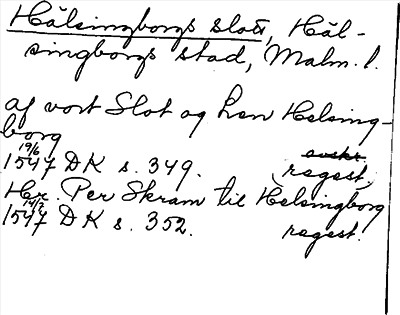 Hälsingborgs slott, Häl-
singborgs stad, Malm. l.
af vort Slot og Len Helsing-
borg
19/6
1547 DK s. 349. regest,
Hr. Per Skram til Helsingborg
14/7
1547 DK s. 352. regest.